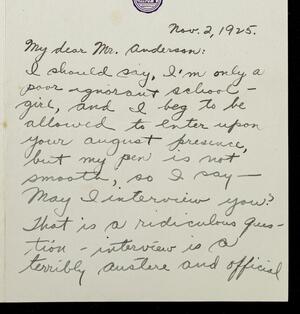 Nov. 2, 1925.
My dear Mr. Anderson:
I should say, I'm only a
poor ignorant school-
girl, and I beg to be
allowed to enter upon
your august presence,
but my pen is not
smooth, so I say—
May I interview you?
That is a ridiculous ques-
tion - interview is a
terribly austere and official